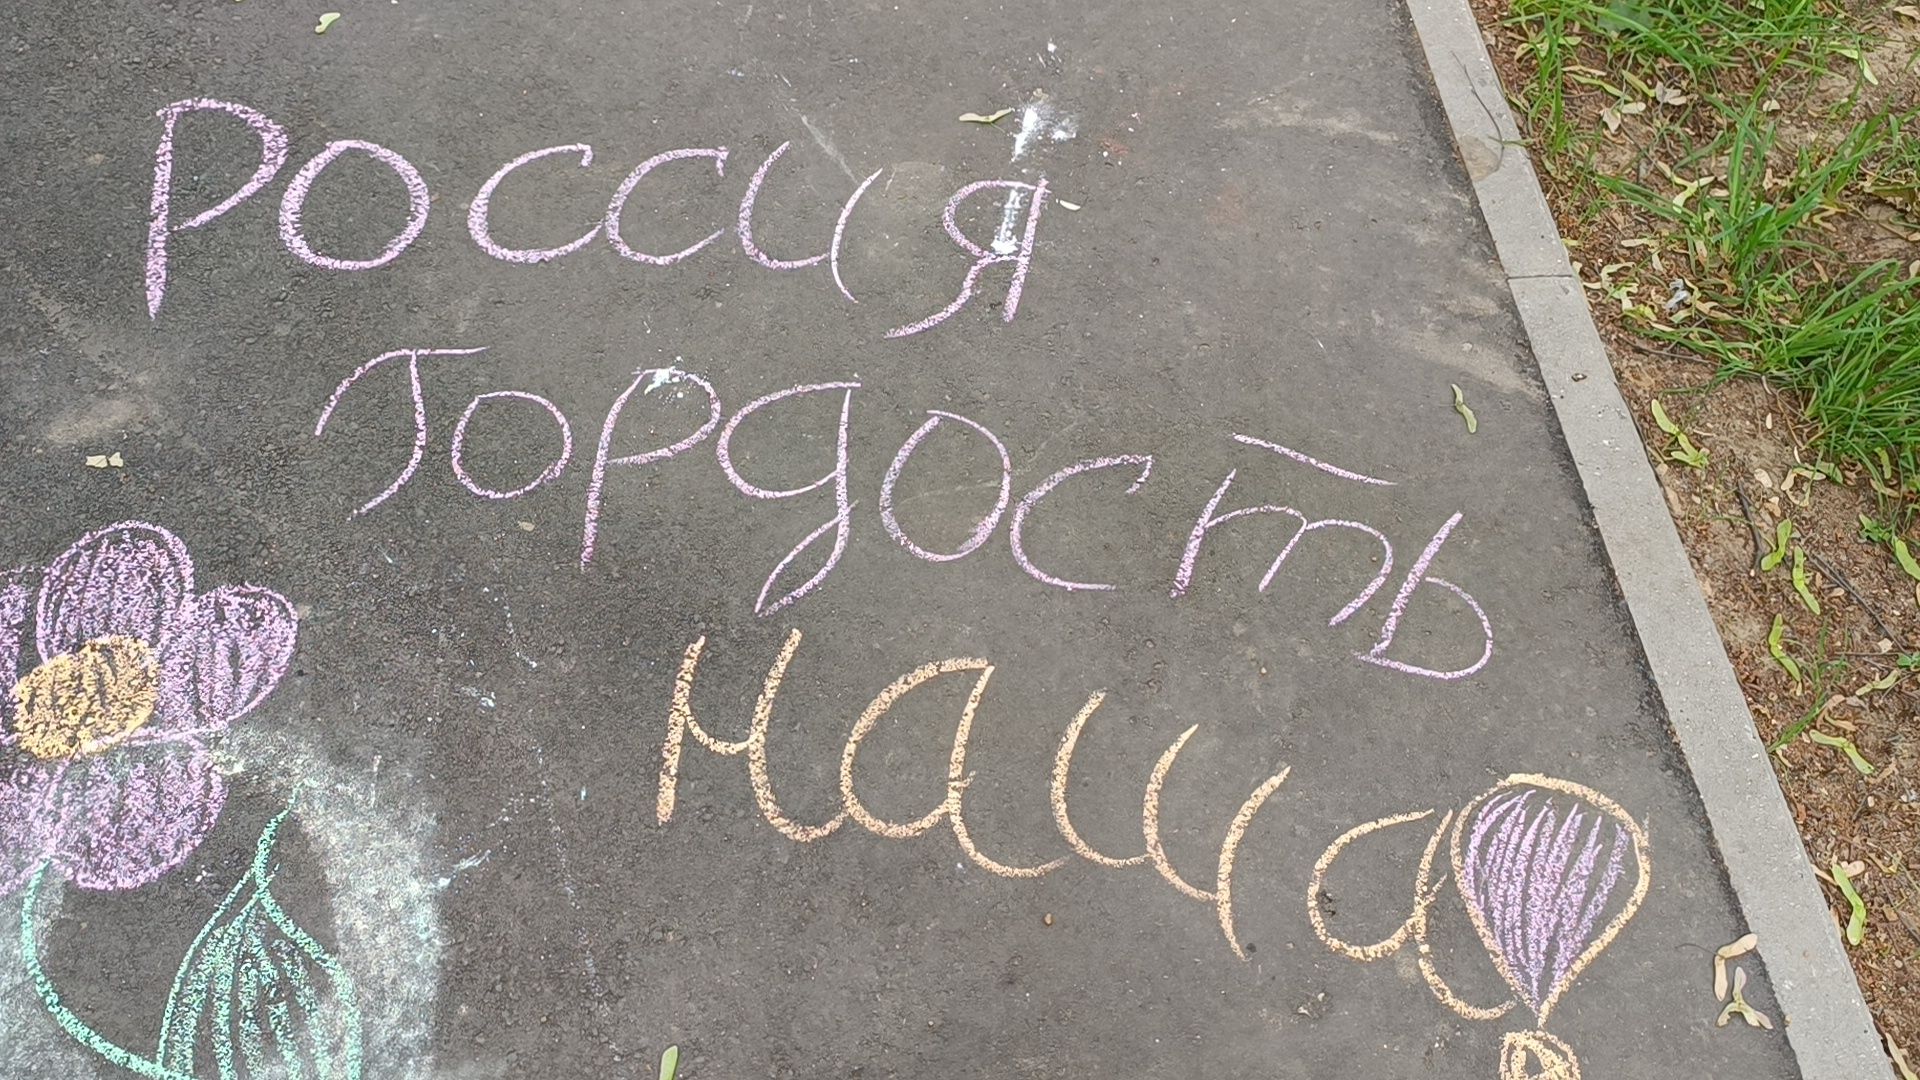 Россия
Гордость
наша